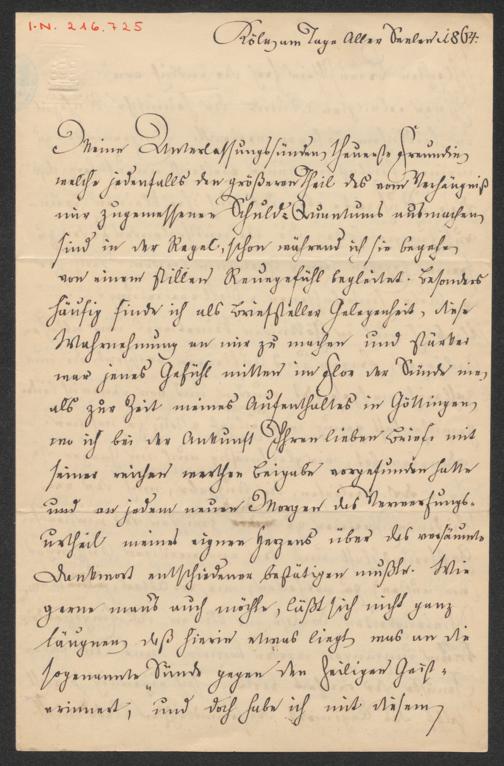 I.N. 216.725
Köln, am Tage Aller Seelen. 1864.
Meine Unterlassungssünden, theuerste Freundin,
welche jedenfalls den größeren Theil des vom Verhängniß
mir zugemessenen Schuld-Quantums ausmachen,
sind in der Regel, schon während ich sie begehe,
von einem stillen Reuegefühl begleitet. Besonders
häufig finde ich als Briefsteller Gelegenheit, diese
Wahrnehmung an mir zu machen und stärker
war jenes Gefühl mitten im Flor der Sünde nie,
als zur Zeit meines Aufenthaltes in Göttingen,
wo ich bei der Ankunft Ihren lieben Brief mit
seiner reichen werthen Beigabe vorgefunden hatte
und an jedem neuen Morgen das Verwerfungs-
urtheil meines eignen Herzens über das versäumte
Dankwort entschiedener bestätigen mußte. Wie
gerne man's auch möchte, läßt sich nicht ganz
läugnen, daß hierin etwas liegt, was an die
sogenannte "Sünde gegen den heiligen Geist"
erinnert, und doch habe ich mit diesem